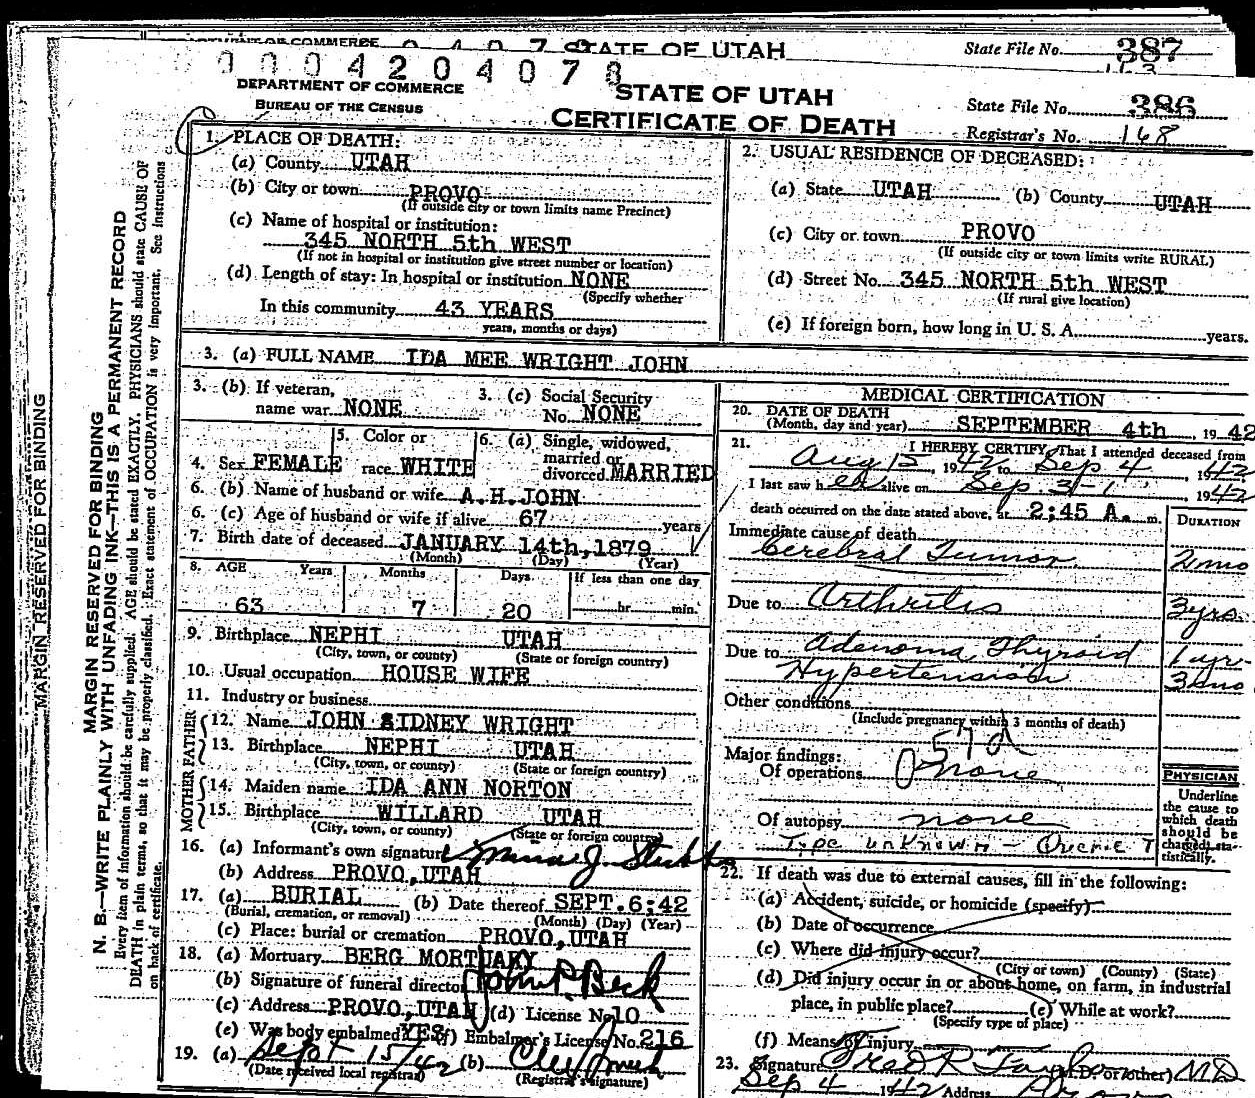 DEPARTMENT OF COMMERCE STATE OF UTAH State File No. 387
0 0 0 4 2 0 4 0 7 8
DEPARTMENT OF COMMERCE
BUREAU OF THE CENSUS
STATE OF UTAH
CERTIFICATE OF DEATH
State File No. 386
Registrar's No. 168
1. PLACE OF DEATH:
(a) County UTAH
(b) City or town PROVO
(If outside city or town limits name Precinct)
(c) Name of hospital or institution:
345 NORTH 5th WEST
(If not in hospital or institution give street number or location)
(d) Length of stay: In hospital or institution NONE
(Specify whether
In this community 43 YEARS
years, months or days)
2. USUAL RESIDENCE OF DECEASED:
(a) State UTAH (b) County UTAH
(c) City or town PROVO
(If outside city or town limits write RURAL)
(d) Street No. 345 NORTH 5th WEST
(If rural give location)
(e) If foreign born, how long in U. S. A. years.
3. (a) FULL NAME IDA MEE WRIGHT JOHN
3. (b) If veteran,
name war NONE
3. (c) Social Security
No. NONE
4. Sex FEMALE
5. Color or
race WHITE
6. (a) Single, widowed,
married or
divorced MARRIED
6. (b) Name of husband or wife A.H.JOHN
6. (c) Age of husband or wife if alive 67 years
7. Birth date of deceased JANUARY 14th, 1879
(Month) (Day) (Year)
8. AGE Years Months Days If less than one day
63 7 20 hr. min.
9. Birthplace NEPHI UTAH
(City, town, or county) (State or foreign country)
10. Usual occupation HOUSE WIFE
11. Industry or business
FATHER
12. Name JOHN SIDNEY WRIGHT
13. Birthplace NEPHI UTAH
(City, town, or county) (State or foreign country)
MOTHER
14. Maiden name IDA ANN NORTON
15. Birthplace WILLARD UTAH
(City, town, or county) (State or foreign country)
16. (a) Informant's own signature
(b) Address PROVO, UTAH
17. (a) BURIAL (b) Date thereof SEPT. 6; 42
(Burial, cremation, or removal) (Month) (Day) (Year)
(c) Place: burial or cremation PROVO, UTAH
18. (a) Mortuary BERG MORTUARY
(b) Signature of funeral director John P. Beck
(c) Address PROVO, UTAH (d) License No. 10
(e) Was body embalmed YES (f) Embalmer's License No. 216
19. (a) Sept 15/42 (b)
(Date received local registrar) (Registrar's signature)
MEDICAL CERTIFICATION
20. DATE OF DEATH
(Month, day and year) SEPTEMBER 4th, 1942
21. I HEREBY CERTIFY, That I attended deceased from
Aug 15, 1942 to Sep 4, 1942
I last saw her alive on Sep 3, 1942
death occurred on the date stated above, at 2;45 A. m.
DURATION
Immediate cause of death
Cerebral Tumor 2 mo
Due to Arthritis 3 yrs.
Due to Adenoma Thyroid 1 yr.
Hypertension 3 mo
Other conditions
(Include pregnancy within 3 months of death)
57d
Major findings:
Of operations none
Of autopsy none
Type unknown - Querie T
PHYSICIAN
Underline
the cause to
which death
should be
charged sta-
tistically.
22. If death was due to external causes, fill in the following:
(a) Accident, suicide, or homicide (specify)
(b) Date of occurrence
(c) Where did injury occur?
(City or town) (County) (State)
(d) Did injury occur in or about home, on farm, in industrial
place, in public place? (e) While at work?
(Specify type of place)
(f) Means of injury
23. Signature Fred R Taylor (M.D. or other) MD
Sep 4 1942 Address Provo
MARGIN RESERVED FOR BINDING
MARGIN RESERVED FOR BINDING
N. B.—WRITE PLAINLY WITH UNFADING INK—THIS IS A PERMANENT RECORD
Every item of information should be carefully supplied. AGE should be stated EXACTLY. PHYSICIANS should state CAUSE OF
DEATH in plain terms, so that it may be properly classified. Exact statement of OCCUPATION is very important. See instructions
on back of certificate.